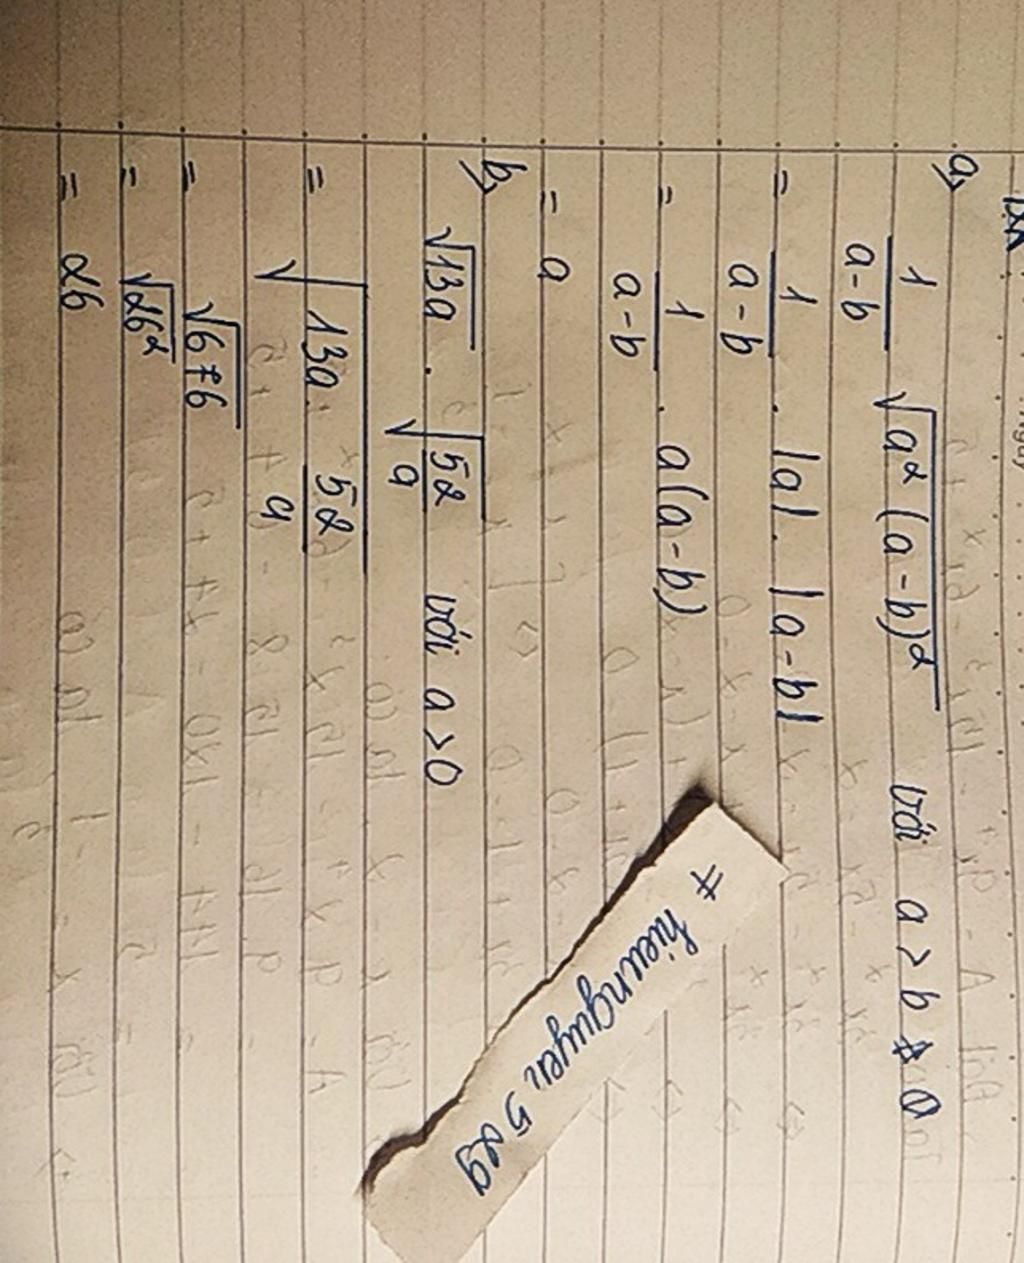 a,
1/(a-b) √(a²(a-b)²) với a > b > 0
= 1/(a-b) . |a| . |a-b|
= 1/(a-b) . a(a-b)
= a
b,
√(13a) . √(52/a) với a>0
= √(13a . 52/a)
= √676
= √26²
= 26
# hieunguyen 529